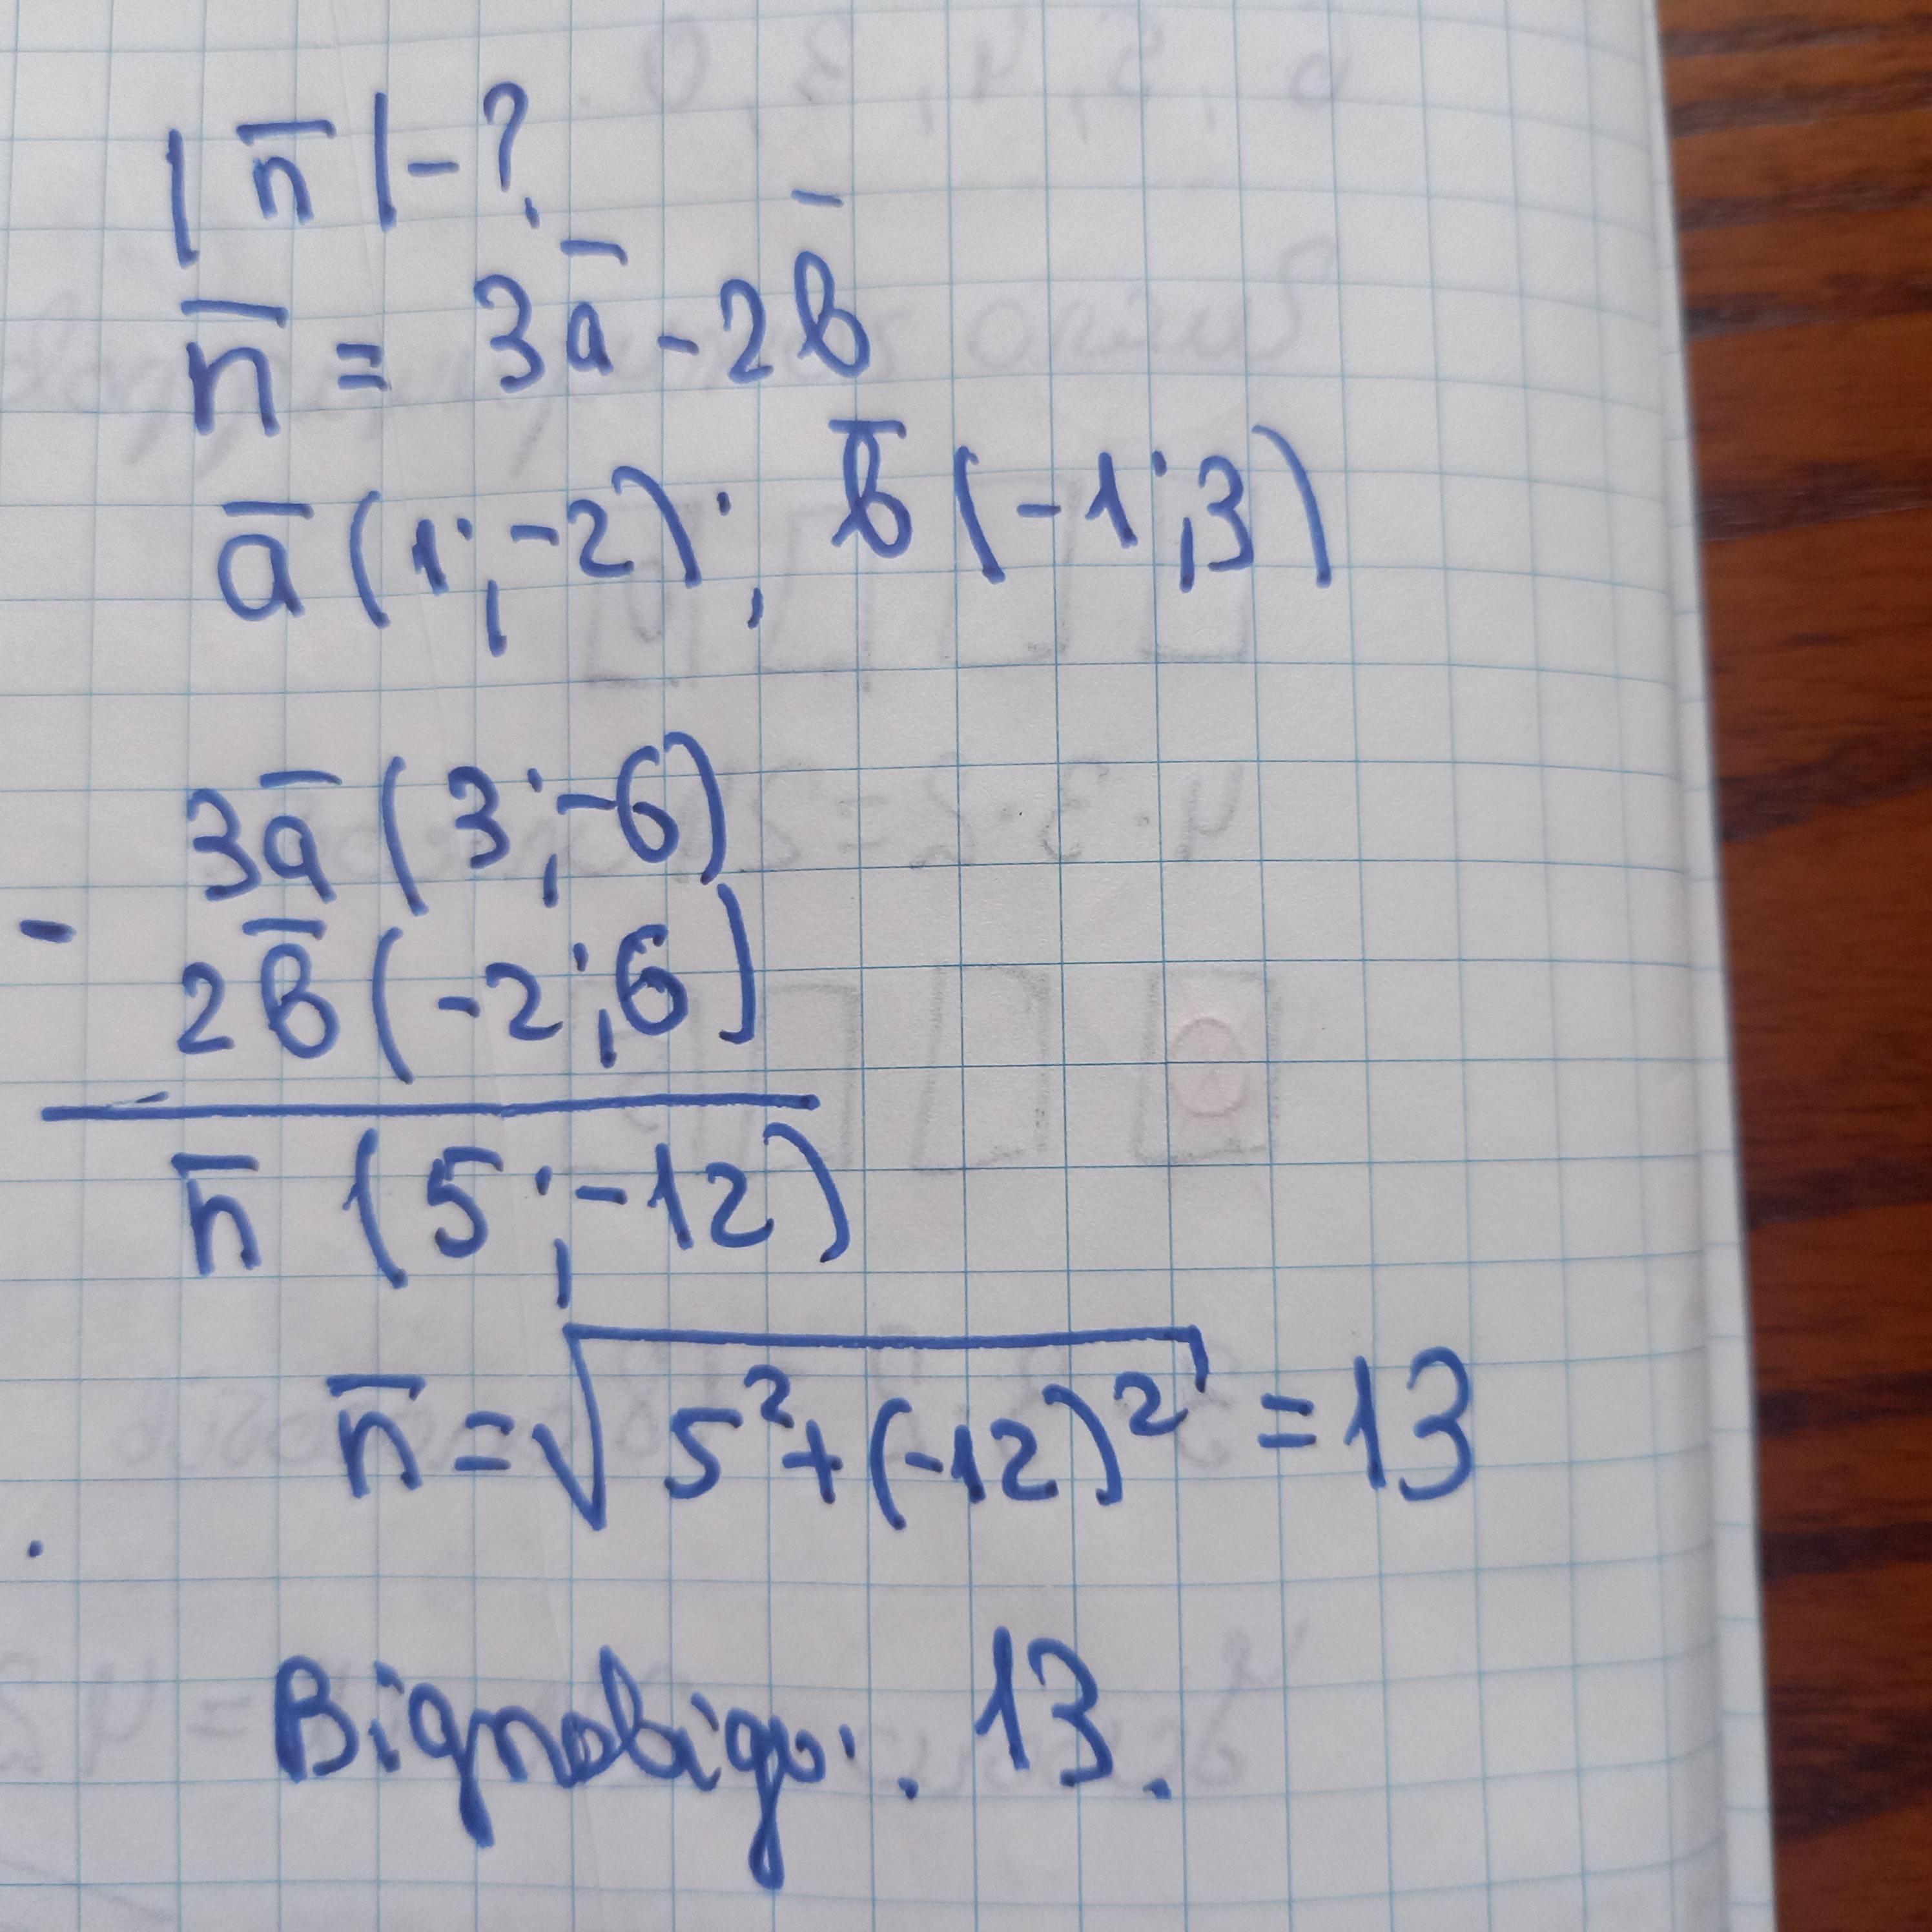 |n̅| - ?
n̅ = 3a̅ - 2b̅
a̅ (1; -2); b̅ (-1; 3)
3a̅ (3; -6)
-
2b̅ (-2; 6)
n̅ (5; -12)
n̅ = √(5² + (-12)²) = 13
Відповідь: 13.